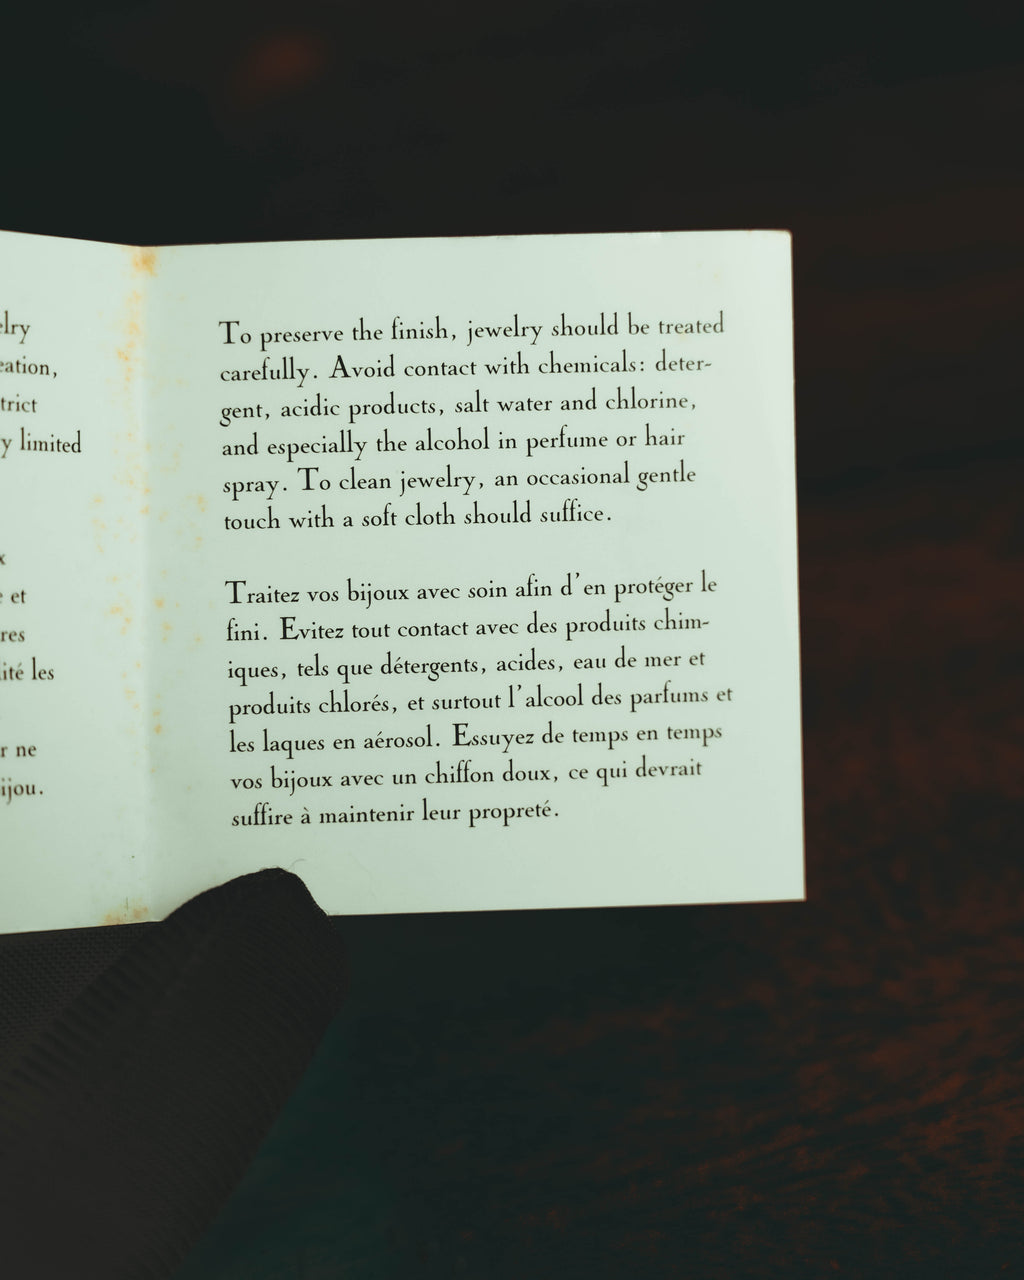 ation,
trict
y limited
et
res
ité les
r ne
ijou.
To preserve the finish, jewelry should be treated
carefully. Avoid contact with chemicals: deter-
gent, acidic products, salt water and chlorine,
and especially the alcohol in perfume or hair
spray. To clean jewelry, an occasional gentle
touch with a soft cloth should suffice.
Traitez vos bijoux avec soin afin d'en protéger le
fini. Evitez tout contact avec des produits chim-
iques, tels que détergents, acides, eau de mer et
produits chlorés, et surtout l'alcool des parfums et
les laques en aérosol. Essuyez de temps en temps
vos bijoux avec un chiffon doux, ce qui devrait
suffire à maintenir leur propreté.